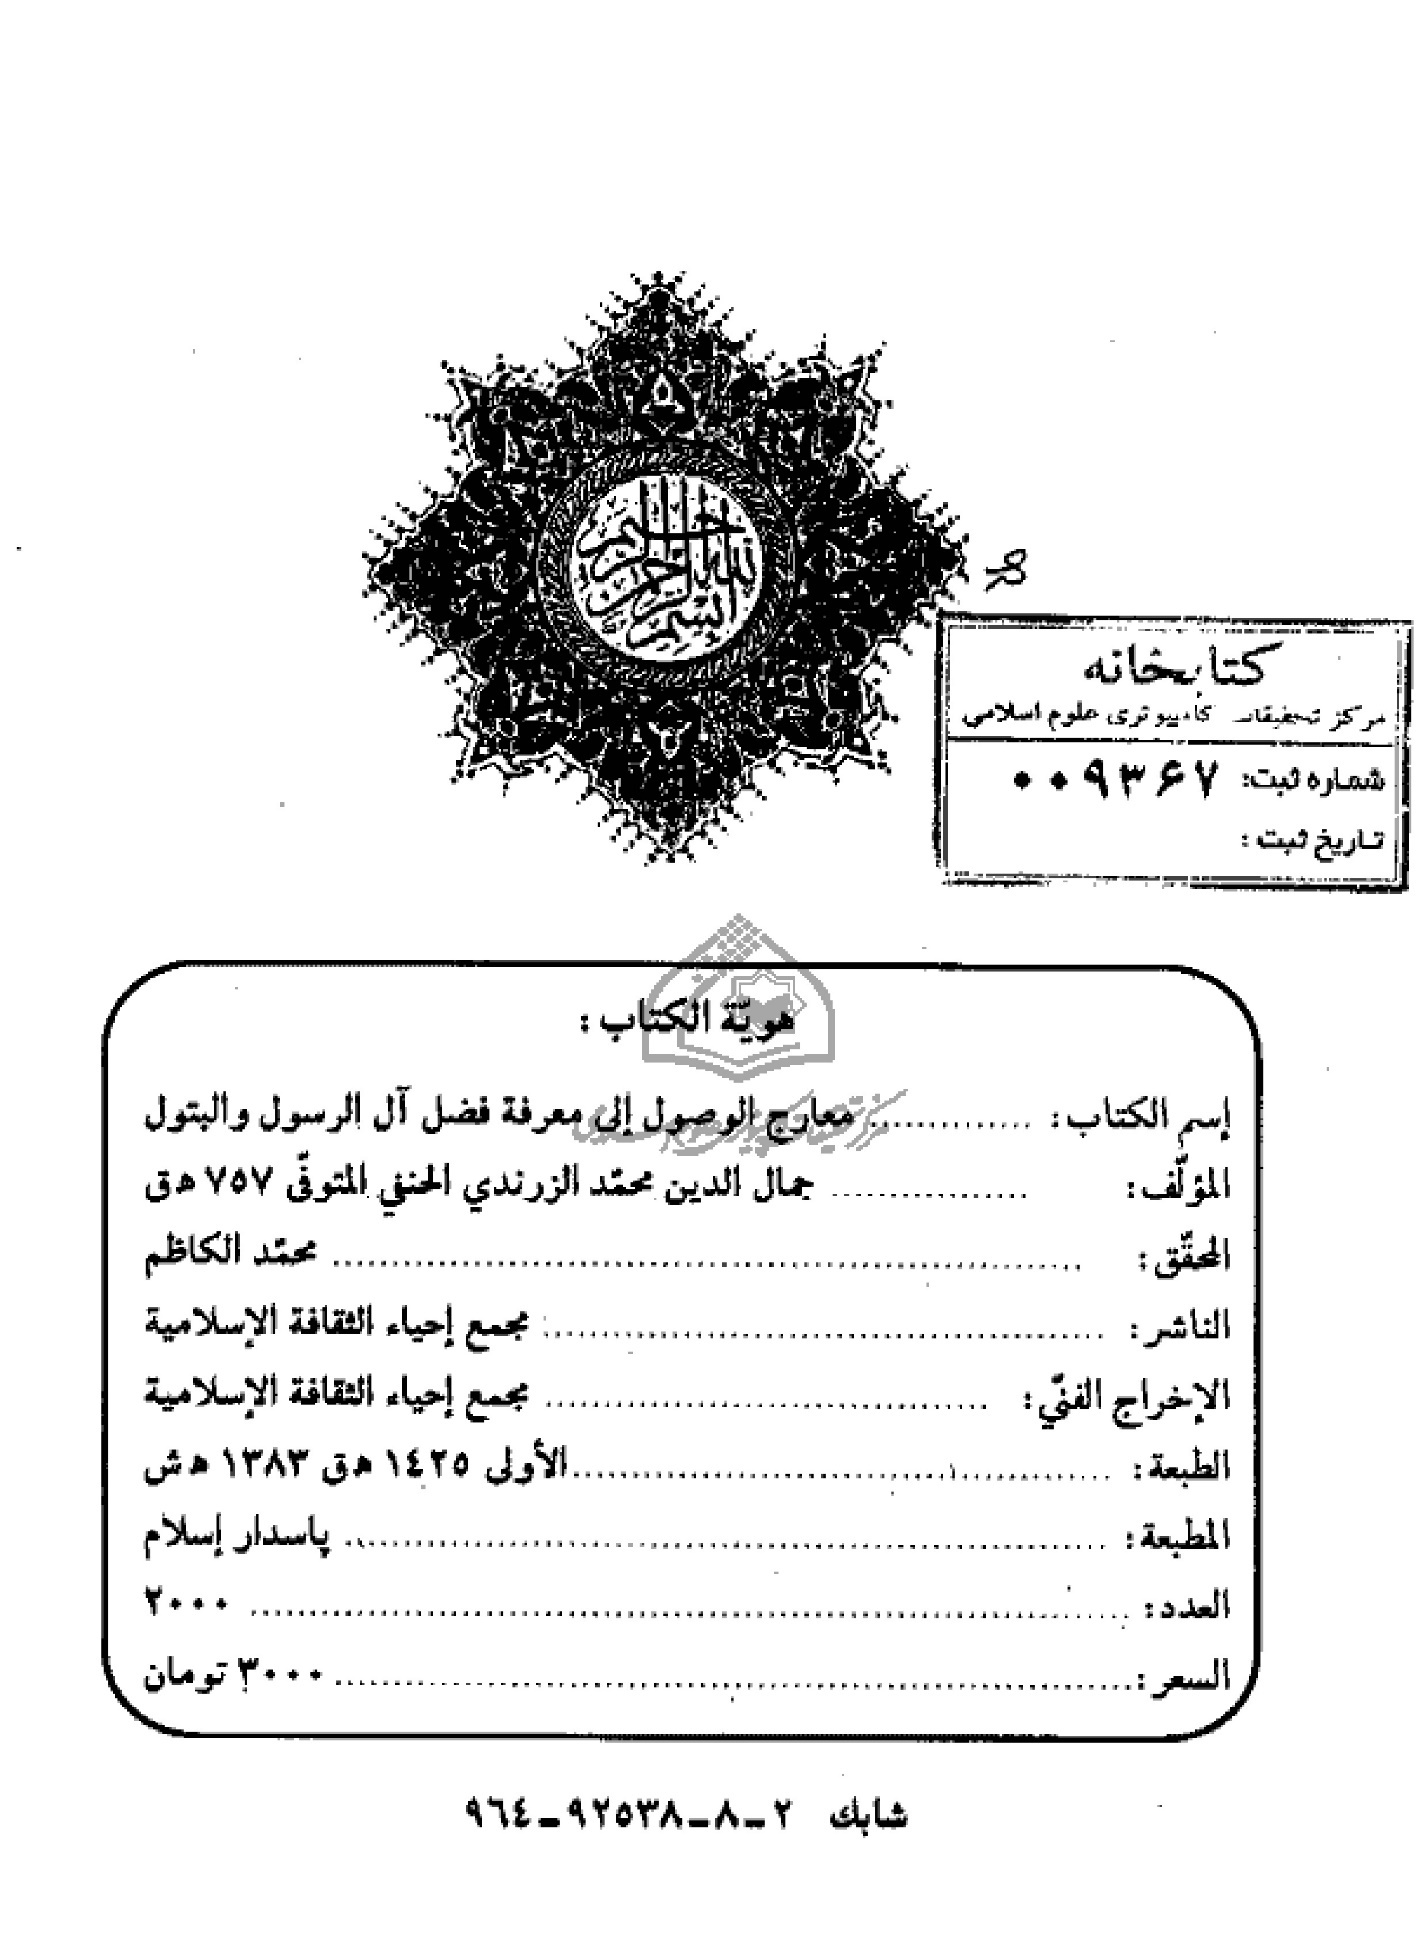 بسم الله الرحمن الرحيم
کتابخانه
مرکز تحقیقات کامپیوتری علوم اسلامی
شماره ثبت: ۰۰۹۳۶۷
تاریخ ثبت :
هويّة الكتاب :
إسم الكتاب: .............. معارج الوصول إلى معرفة فضل آل الرسول والبتول
المؤلّف: ................ جمال الدين محمّد الزرندي الحنفي المتوفّى ٧٥٧ ه‍ ق
المحقّق: ................................ محمّد الكاظم
الناشر: ................................ مجمع إحياء الثقافة الإسلامية
الإخراج الفنّي: ................................ مجمع إحياء الثقافة الإسلامية
الطبعة: ................................ الأولى ١٤٢٥ ه‍ ق ١٣٨٣ ه‍ ش
المطبعة: ................................ پاسدار إسلام
العدد: ................................ ٢٠٠٠
السعر: ................................ ٣٠٠٠ تومان
شابك ٢ ـ ٨ ـ ٩٢٥٣٨ ـ ٩٦٤